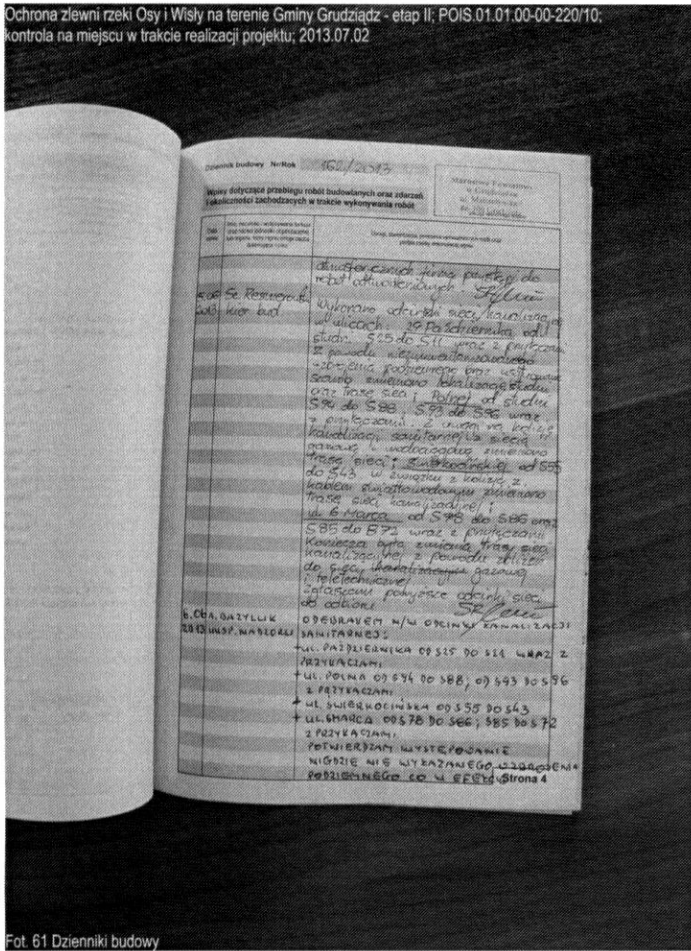 Ochrona zlewni rzeki Osy i Wisły na terenie Gminy Grudziądz - etap II; POIS.01.01.00-00-220/10;
kontrola na miejscu w trakcie realizacji projektu; 2013.07.02
Dziennik budowy Nr/Rok 362/2013
Wpisy dotyczące przebiegu robót budowlanych oraz zdarzeń
i okoliczności zachodzących w trakcie wykonywania robót
Starostwo Powiatowe
w Grudziądzu
firma przystąpi do
robót odtworzeniowych.
Wykonano odcinki sieci kanalizacyjnej
2013 kier. bud. w ulicach: Października od
studn. S25 do S11 wraz z przyłączami
z powodu niezinwentaryzowanego
uzbrojenia podziemnego oraz
zmieniono lokalizację studni
oraz trasę sieci; Polnej od studni
S94 do S88, S93 do S96 wraz
z przyłączami. Z uwagi na kolizję
kanalizacji sanitarnej z siecią
gazową i wodociągową zmieniono
trasę sieci; Świerkocińskiej od S55
do S43 w związku z kolizją z
kablem światłowodowym zmieniono
trasę sieci kanalizacyjnej;
ul. 6 Marca od S78 do S86 oraz
S85 do S72 wraz z przyłączami
Konieczna była zmiana trasy sieci
kanalizacyjnej z powodu zbliżeń
do sieci gazowej
i teletechnicznej.
Zgłaszam powyższe odcinki sieci
do odbioru
A. BAZYLUK ODEBRAŁEM N/W ODCINKI KANALIZACJI
2013 INSP. NADZORU SANITARNEJ:
+ UL. PAŹDZIERNIKA OD S25 DO S11 WRAZ Z
PRZYŁĄCZAMI
+ UL. POLNA OD S94 DO S88; OD S93 DO S96
Z PRZYŁĄCZAMI
+ UL. ŚWIERKOCIŃSKA OD S55 DO S43
+ UL. 6 MARCA OD S78 DO S86; S85 DO S72
Z PRZYŁĄCZAMI
POTWIERDZAM WYSTĘPOWANIE
NIGDZIE NIE WYKAZANEGO UZBROJENIA
PODZIEMNEGO CO W Strona 4
Fot. 61 Dzienniki budowy